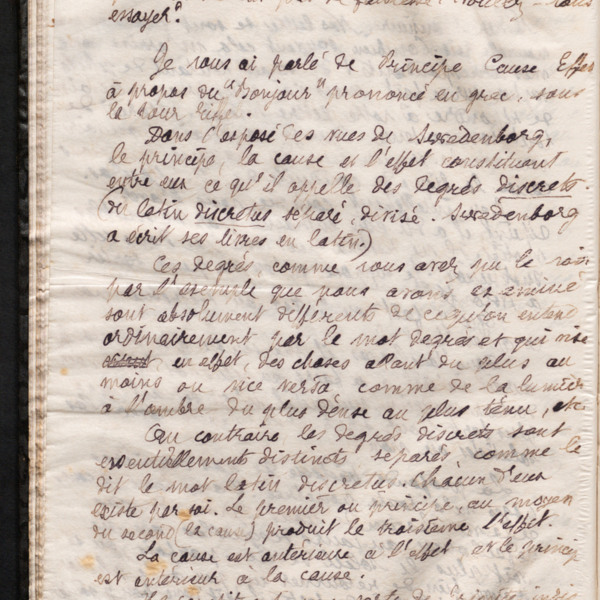 essayer.
Je vous ai parlé de Principe Cause Effet
à propos du "Bonjour" prononcé en grec, sous
la Tour Eiffel.
Dans l'exposé des vues de Swedenborg,
le principe, la cause et l'effet constituent
entre eux ce qu'il appelle des degrés discrets.
(du latin discretus séparé, divisé. Swedenborg
a écrit ses livres en latin.)
Ces degrés, comme vous avez pu le voir
par l'exemple que nous avons examiné
sont absolument différents de ce qu'on entend
ordinairement par le mot degrés et qui vise
en effet, des choses allant du plus au
moins ou vice versa comme de la lumière
à l'ombre du plus dense au plus ténu, etc
Au contraire les degrés discrets sont
essentiellement distincts séparés comme le
dit le mot latin discretus. Chacun d'eux
existe par soi. Le premier ou principe, au moyen
du second (la cause) produit le troisième l'effet.
La cause est antérieure à l'effet et le princip
est antérieur à la cause.